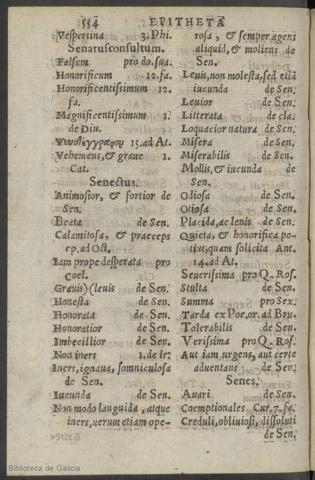 554 EPITHETA
Vespertina 3. Phi.
Senatusconsultum.
Falsum pro do. sua.
Honorificum 12. fa.
Honorificentissimum 12.
fa.
Magnificentissimum 1.
de Diu.
15. ad At.
Vehemens, & graue 1.
Cat.
Senectus.
Animosior, & fortior de
Sen.
Beata de Sen.
Calamitosa, & praeceps
ep. ad Oct.
Iam prope desperata pro
Coel.
Grauis)(leuis de Sen.
Honesta de Sen.
Honorata de Sen.
Honoratior de Sen.
Imbecillior de Sen.
Non iners 1. de le:
Iners, ignaua, somniculosa
de Sen.
Iucunda de Sen.
Non modo languida, atque
iners, uerum etiam ope-
rosa, & semper agens
aliquid, & moliens de
Sen.
Leuis, non molesta, sed etiã
iucunda de Sen.
Leuior de Sen.
Litterata de cla.
Loquacior natura de Sen.
Misera de Sen.
Miserabilis de Sen.
Mollis, & iucunda de
Sen.
Odiosa de Sen.
Otiosa de Sen.
Placida, ac lenis de Sen.
Quieta, & honorifica po-
tius, quam solicita Ant.
14. ad At.
Seuerissima pro Q. Ros.
Stulta de Sen.
Summa pro Sex.
Tarda ex Poe. or. ad Bru.
Tolerabilis de Sen.
Verissima pro Q. Ros.
Aut iam urgens, aut certe
aduentans de Sen.
Senes.
Auari de Sen.
Coemptionales Cur. 7. fa.
Creduli, obliuiosi, dissoluti
de Sen.
Biblioteca de Galicia